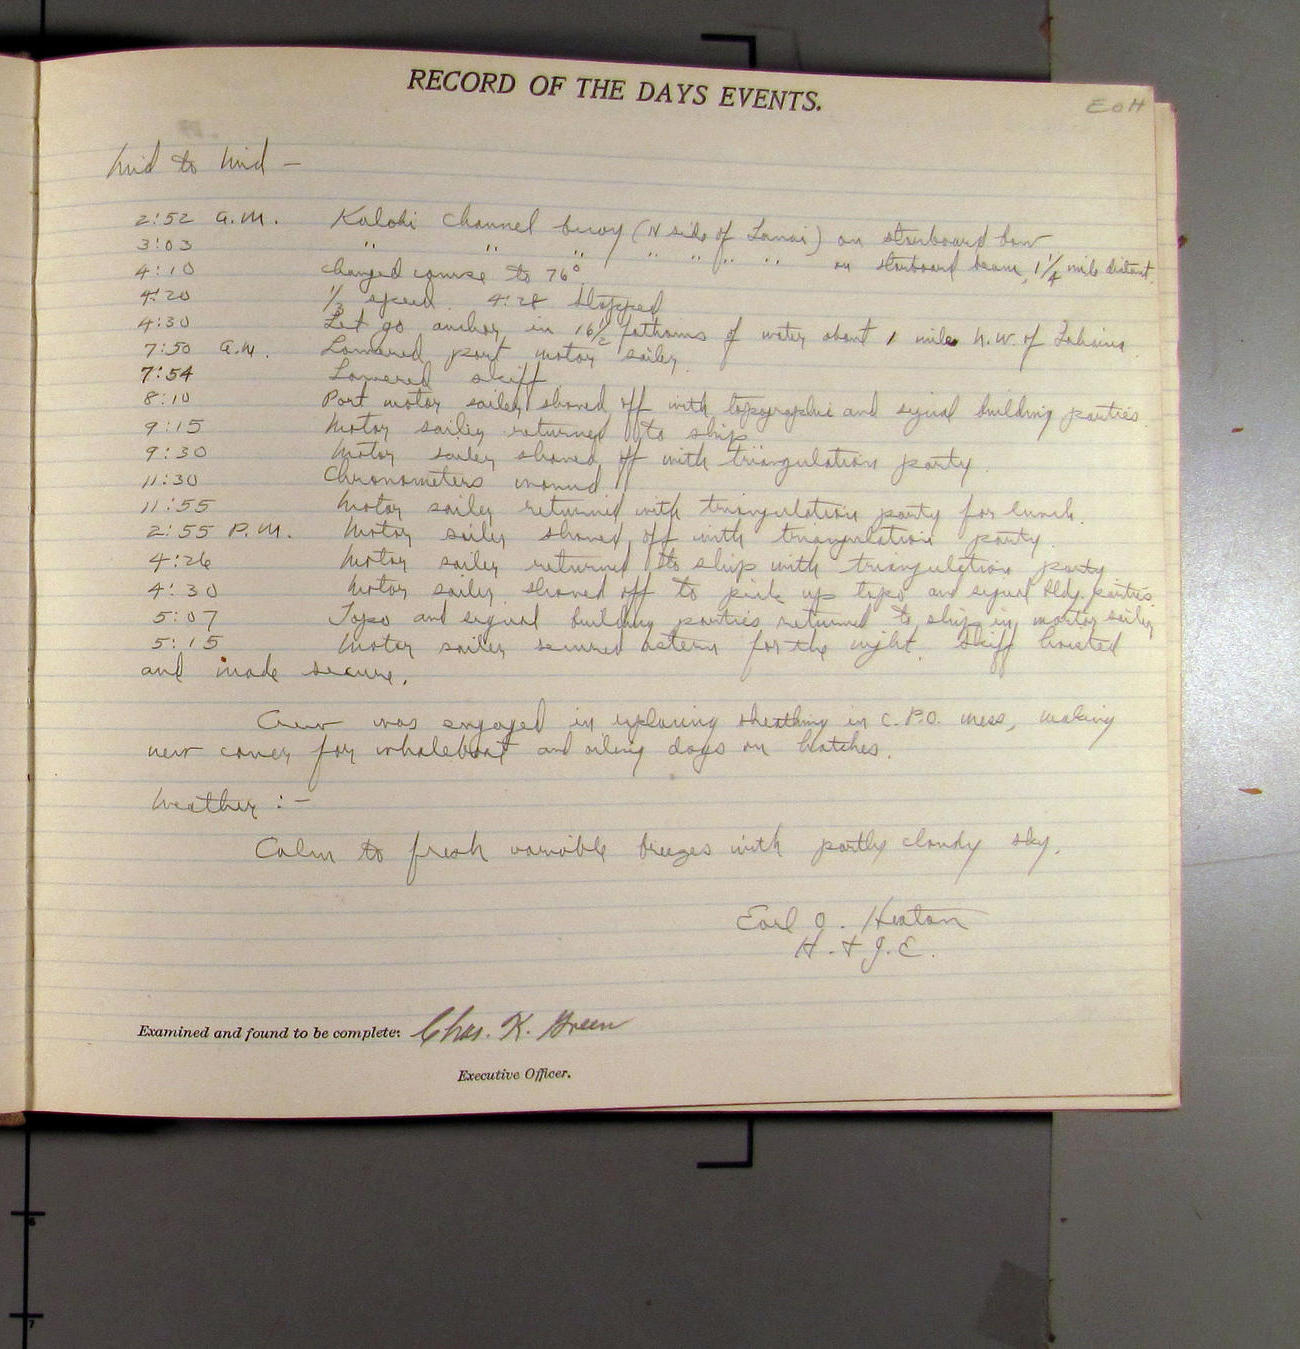 RECORD OF THE DAYS EVENTS.
EOH
Mid to Mid —
2:52 a.m. Kalohi Channel buoy (N side of Lanai) on starboard bow
3:03 " " " " " " " on starboard beam, 1 1/4 mile distant.
4:10 Changed course to 76°
4:20 1/3 speed. 4:28 Stopped
4:30 Let go anchor in 16 1/2 fathoms of water about 1 mile N.W. of Lahaina.
7:50 a.m. Lowered port motor sailer.
7:54 Lowered skiff.
8:10 Port motor sailer shoved off with topographic and signal building parties.
9:15 Motor sailer returned to ship.
9:30 Motor sailer shoved off with triangulation party.
11:30 Chronometers wound
11:55 Motor sailer returned with triangulation party for lunch.
2:55 P.M. Motor sailer shoved off with triangulation party.
4:26 Motor sailer returned to ship with triangulation party
4:30 Motor sailer shoved off to pick up topo and signal bldg. parties.
5:07 Topo and signal building parties returned to ship in motor sailer
5:15 Motor sailer secured astern for the night. Skiff hoisted
and made secure.
Crew was engaged in replacing sheathing in C.P.O. mess, making
new cover for whaleboat and oiling dogs on hatches.
Weather :—
Calm to fresh variable breezes with partly cloudy sky.
Earl O. Heaton
H. + G. E.
Examined and found to be complete: Chas. K. Green
Executive Officer.
6
7